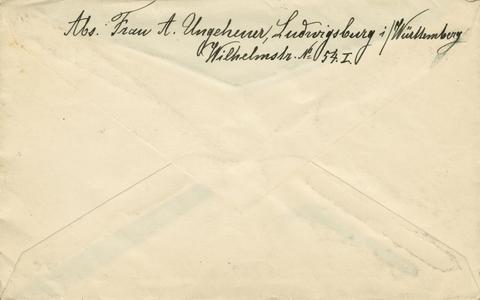 Abs. Frau A. Ungeheuer, Ludwigsburg i/Württemberg
Wilhelmstr. No 54. I.